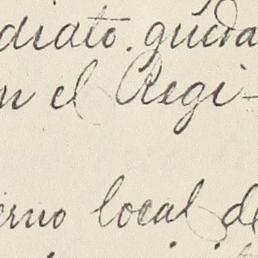 diato. queda
en el Regi-
erno local de